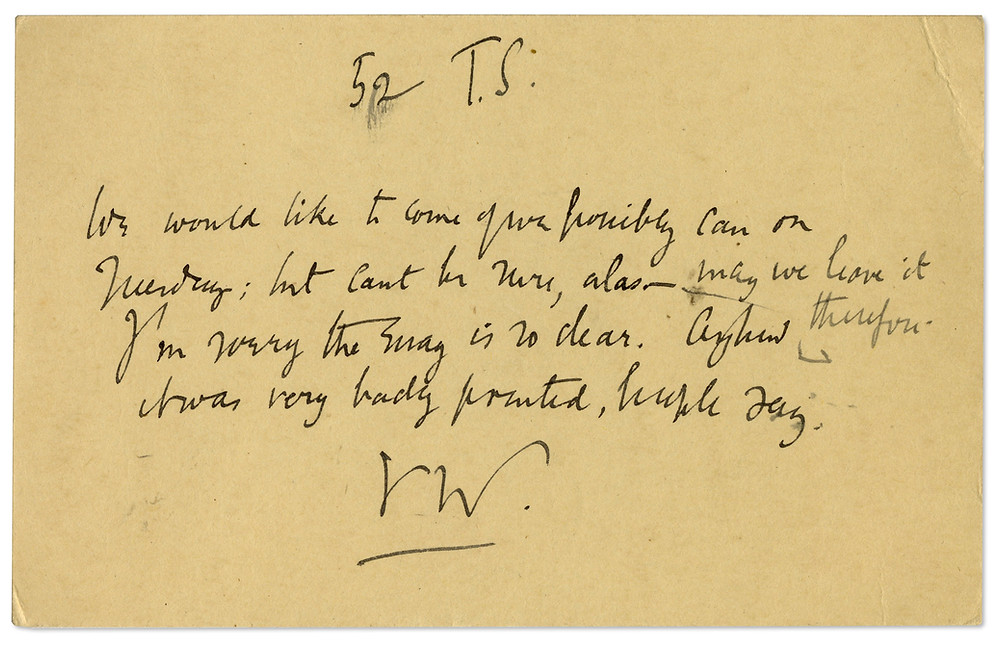 52 T.S.
We would like to come if we possibly can on
Tuesday; but cant be sure, alas— may we leave it
therefore.
I'm sorry the Essay is so dear.
it was very badly printed, people say.
VW.